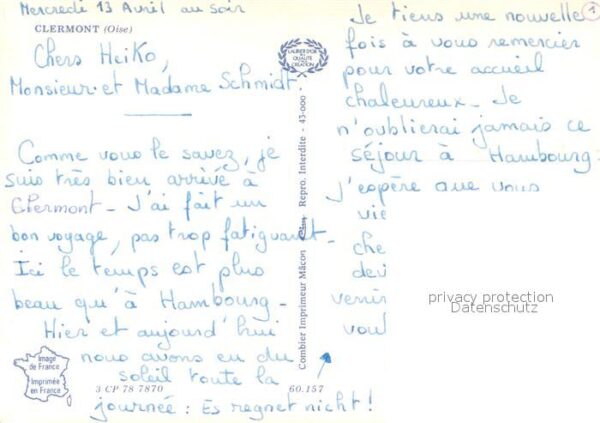 Mercredi 13 Avril au soir
CLERMONT (Oise)
Chers Heiko,
Monsieur et Madame Schmidt.
Comme vous le savez, je
suis très bien arrivé à
Clermont - J'ai fait un
bon voyage, pas trop fatiguant -
Ici le temps est plus
beau qu'à Hambourg -
Hier et aujourd'hui
nous avons eu du
soleil toute la
journée : Es regnet nicht !
Image
de France
Imprimée
en France
3 CP 78 7870
60.157
LAURIER D'OR
QUALITÉ
CRÉATION
Combier Imprimeur Mâcon - Repro. Interdite - 43-000
1
Je tiens une nouvelle
fois à vous remercier
pour votre accueil
chaleureux - Je
n'oublierai jamais ce
séjour à Hambourg :
J'espère que vous
vie
che
dev
venir
vou
privacy protection
Datenschutz